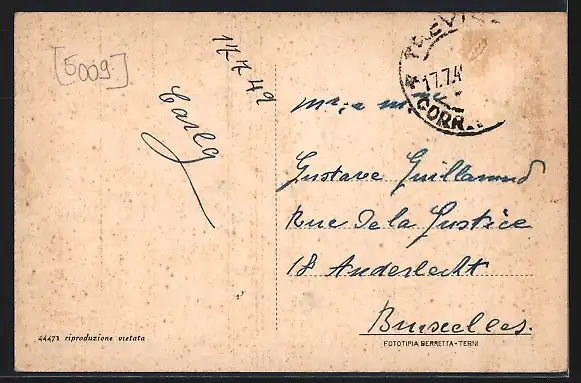 [5009]
17.7.42
Carla
TREVI
17.7.4
CORR
Gustave Guillamund
Rue De la Justice
18 Anderlecht
Bruxelles.
44471 riproduzione vietata
FOTOTIPIA BERRETTA - TERNI